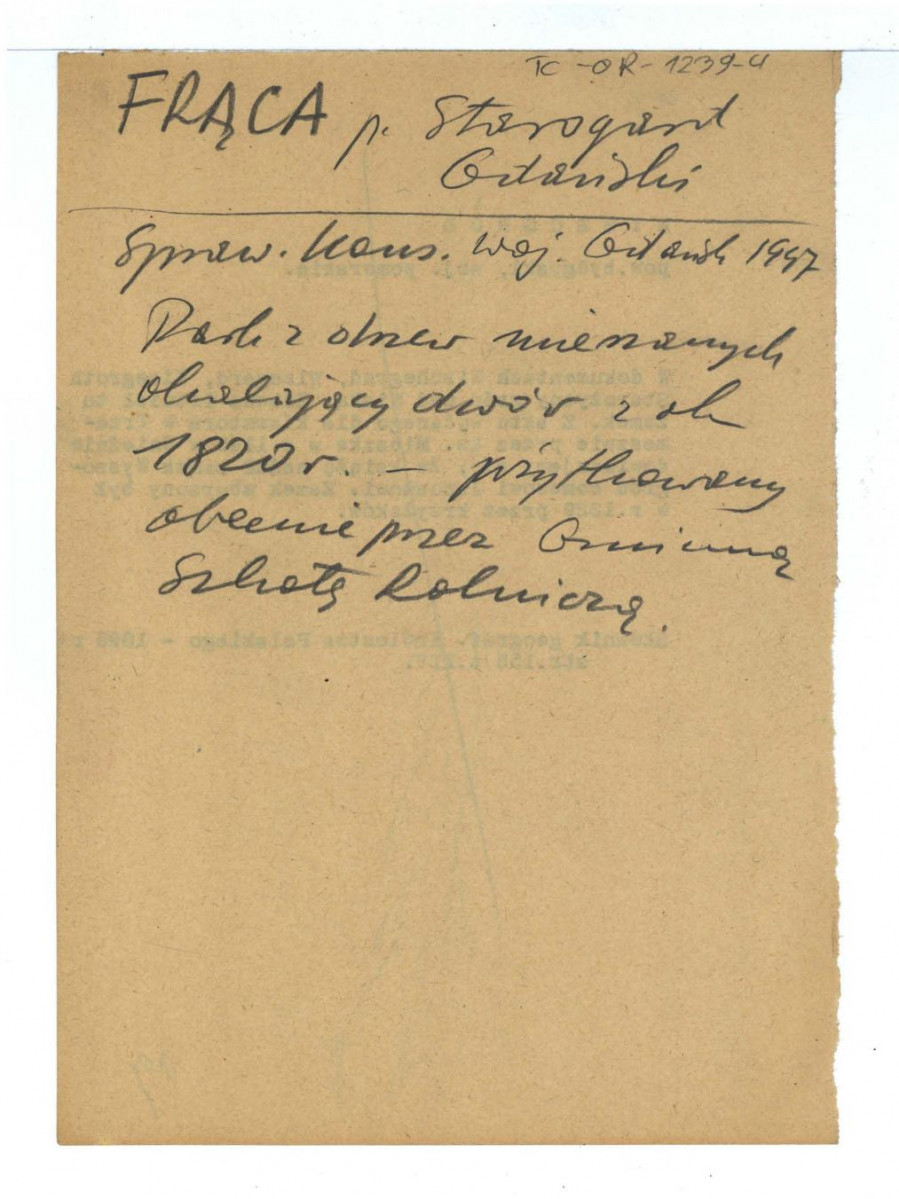 TC-OR-1239-U
FRĄCA p. Starogard
Gdański
Spraw. Kons. Woj. Gdańsk 1947
Park z drzew mieszanych
okalający dwór z ok
1820 r. – użytkowany
obecnie przez Gminną
Szkołę Rolniczą.